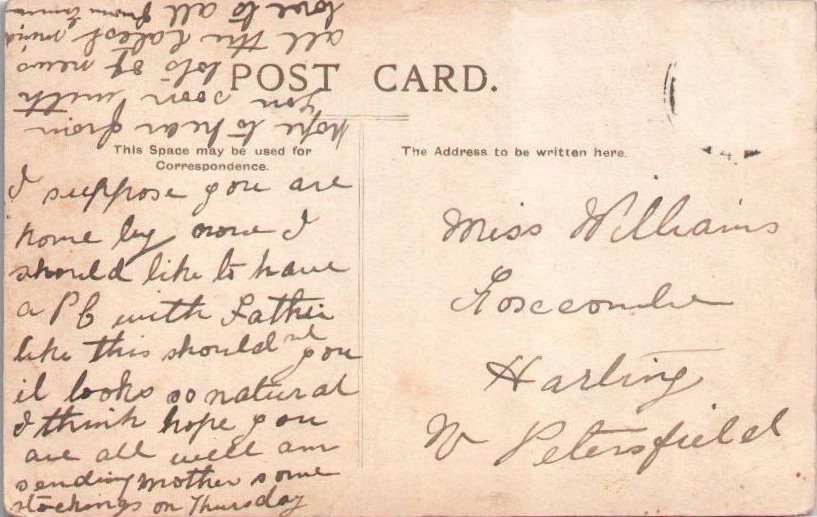 POST CARD.
This Space may be used for
Correspondence.
The Address to be written here.
I suppose you are
home by now I
should like to have
a PC with Father
like this should nt you
it looks so natural
I think hope you
are all well am
sending mother some
stockings on Thursday
hope to hear from
you soon with
lots of news
all the latest
love to all from
Miss Williams
Harting
Nr Petersfield